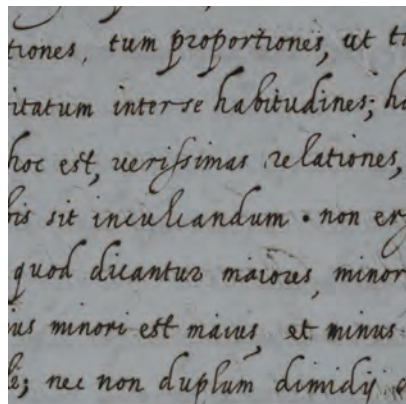 tiones, tum proportiones, ut
itatum inter se habitudines;
hoc est, uerissimas relationes,
bis sit inculcandum. non
quod dicantur maiores, minor
ius minori est maius, et minus
nec non duplum dimidij